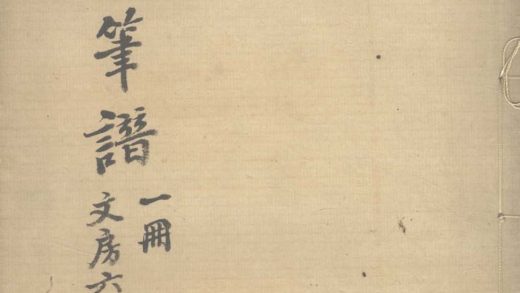 筆譜
一冊
文房六